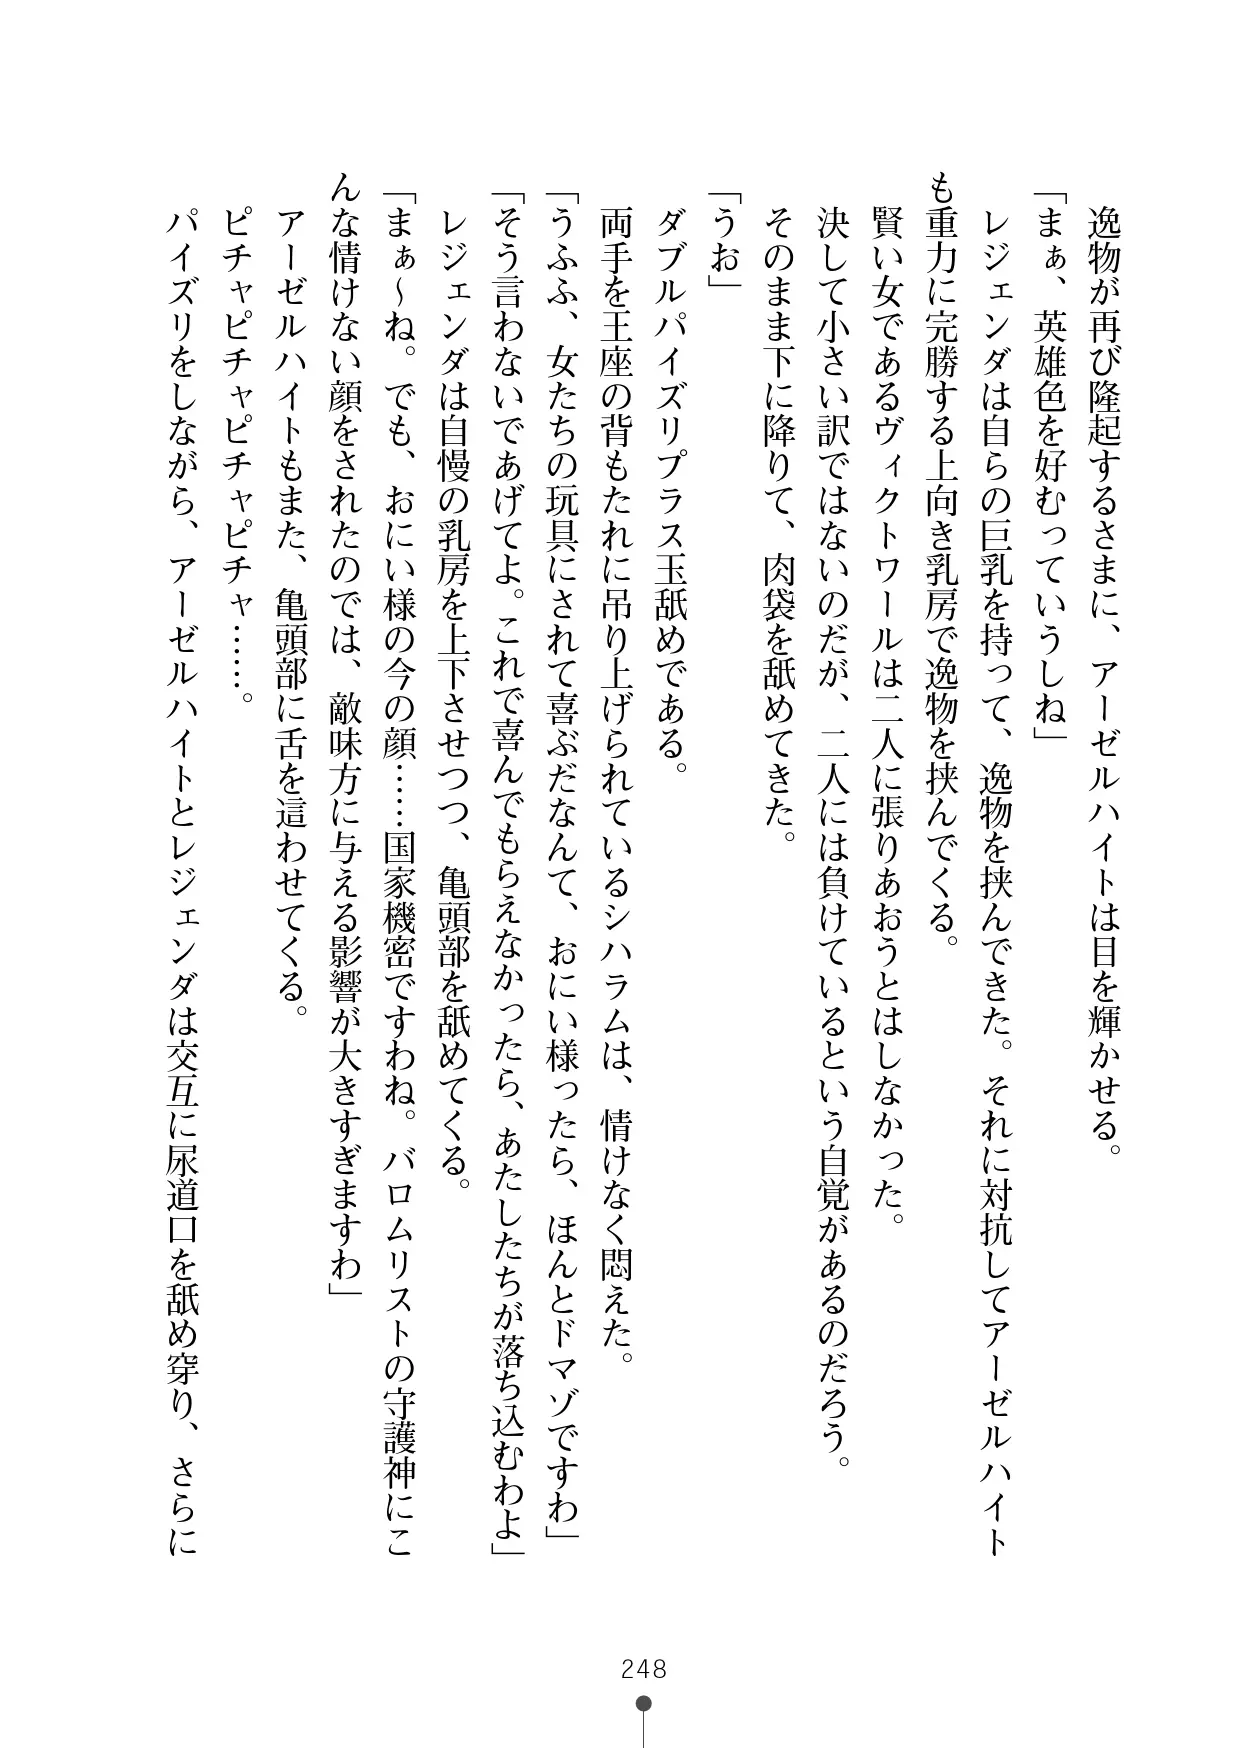 逸物が再び隆起するさまに、アーゼルハイトは目を輝かせる。
「まぁ、英雄色を好むっていうしね」
レジェンダは自らの巨乳を持って、逸物を挟んできた。それに対抗してアーゼルハイト
も重力に完勝する上向き乳房で逸物を挟んでくる。
賢い女であるヴィクトワールは二人に張りあおうとはしなかった。
決して小さい訳ではないのだが、二人には負けているという自覚があるのだろう。
そのまま下に降りて、肉袋を舐めてきた。
「うお」
ダブルパイズリプラス玉舐めである。
両手を王座の背もたれに吊り上げられているシハラムは、情けなく悶えた。
「うふふ、女たちの玩具にされて喜ぶだなんて、おにい様ったら、ほんとドマゾですわ」
「そう言わないであげてよ。これで喜んでもらえなかったら、あたしたちが落ち込むわよ」
レジェンダは自慢の乳房を上下させつつ、亀頭部を舐めてくる。
「まぁ～ね。でも、おにい様の今の顔……国家機密ですわね。バロムリストの守護神にこ
んな情けない顔をされたのでは、敵味方に与える影響が大きすぎますわ」
アーゼルハイトもまた、亀頭部に舌を這わせてくる。
ピチャピチャピチャピチャ……。
パイズリをしながら、アーゼルハイトとレジェンダは交互に尿道口を舐め穿り、さらに
248